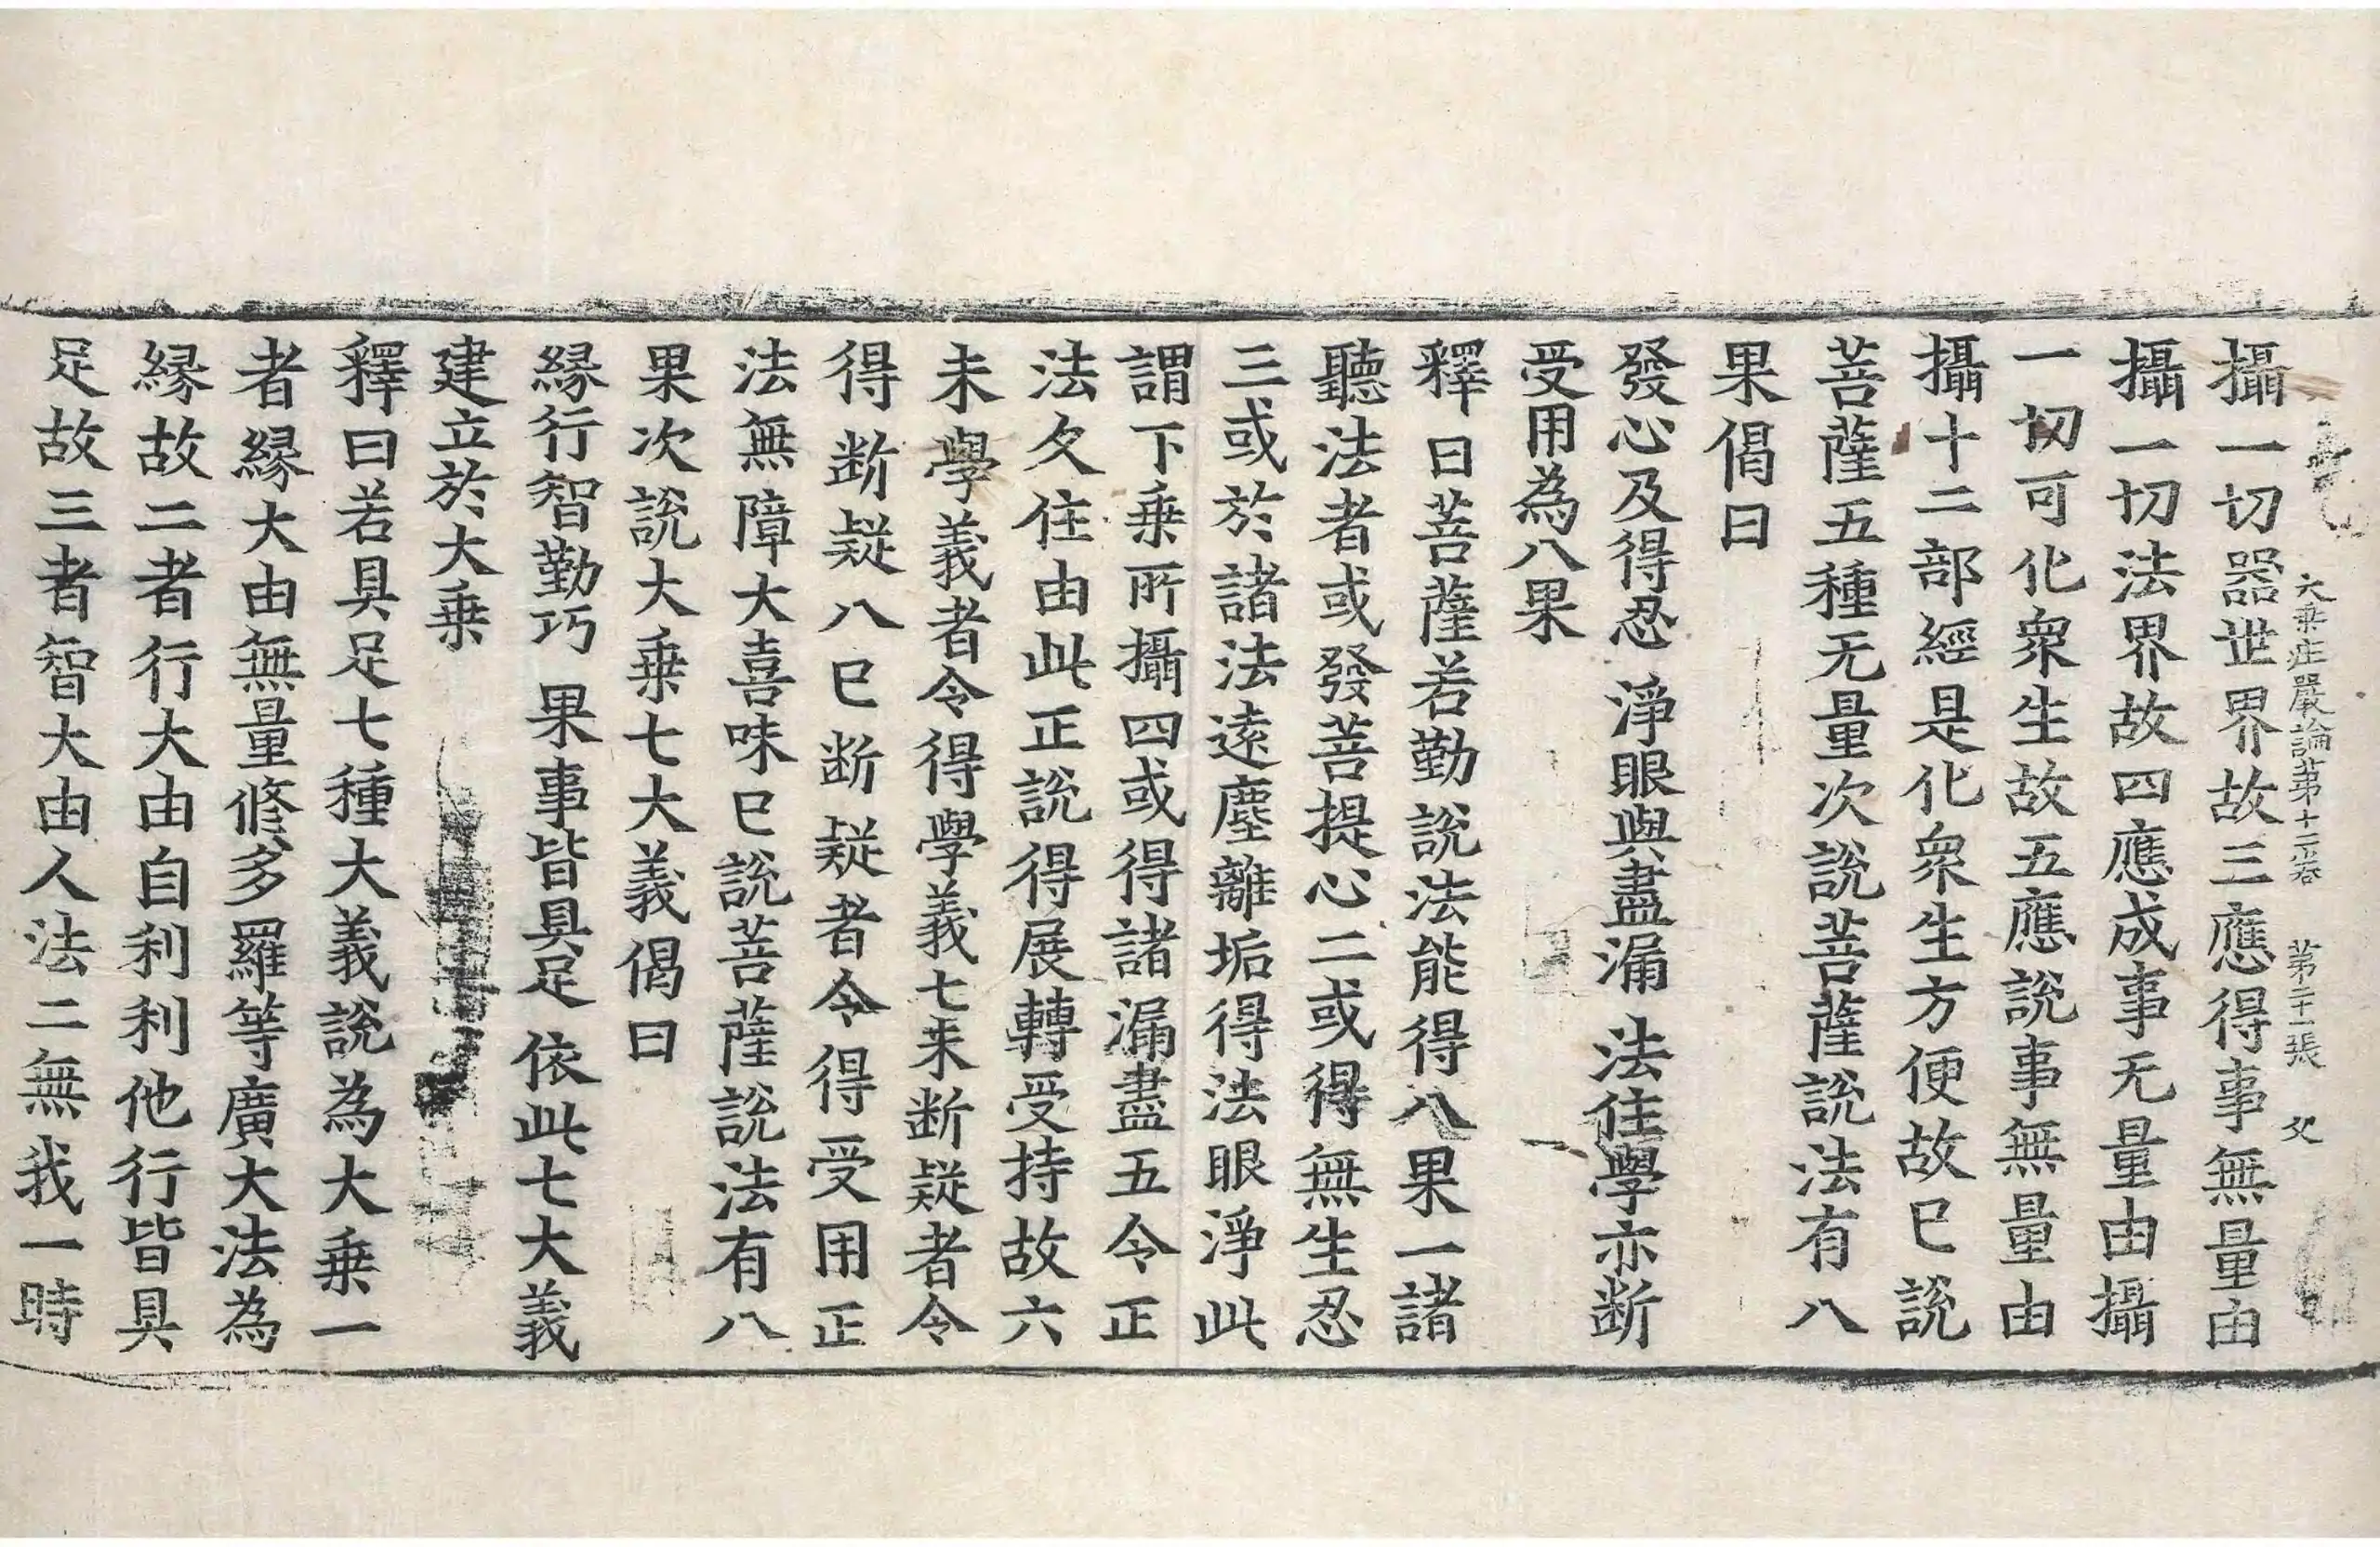 大乗庄嚴論第十二卷　第二十一張　父
攝一切器世界故三應得事無量由
攝一切法界故四應成事无量由攝
一切可化衆生故五應説事無量由
攝十二部經是化衆生方便故已説
菩薩五種无量次説菩薩説法有八
果偈曰
發心及得忍　淨眼與盡漏　法住學亦断
受用為八果
釋曰菩薩若勤説法能得八果一諸
聽法者或發菩提心二或得無生忍
三或於諸法遠塵離垢得法眼淨此
謂下乗所攝四或得諸漏盡五令正
法久住由此正説得展轉受持故六
未學義者令得學義七未断疑者令
得断疑八已断疑者令得受用正
法無障大喜味已説菩薩説法有八
果次説大乗七大義偈曰
縁行智勤巧　果事皆具足　依此七大義
建立於大乗
釋曰若具足七種大義説為大乗一
者縁大由無量修多羅等廣大法為
縁故二者行大由自利利他行皆具
足故三者智大由人法二無我一時